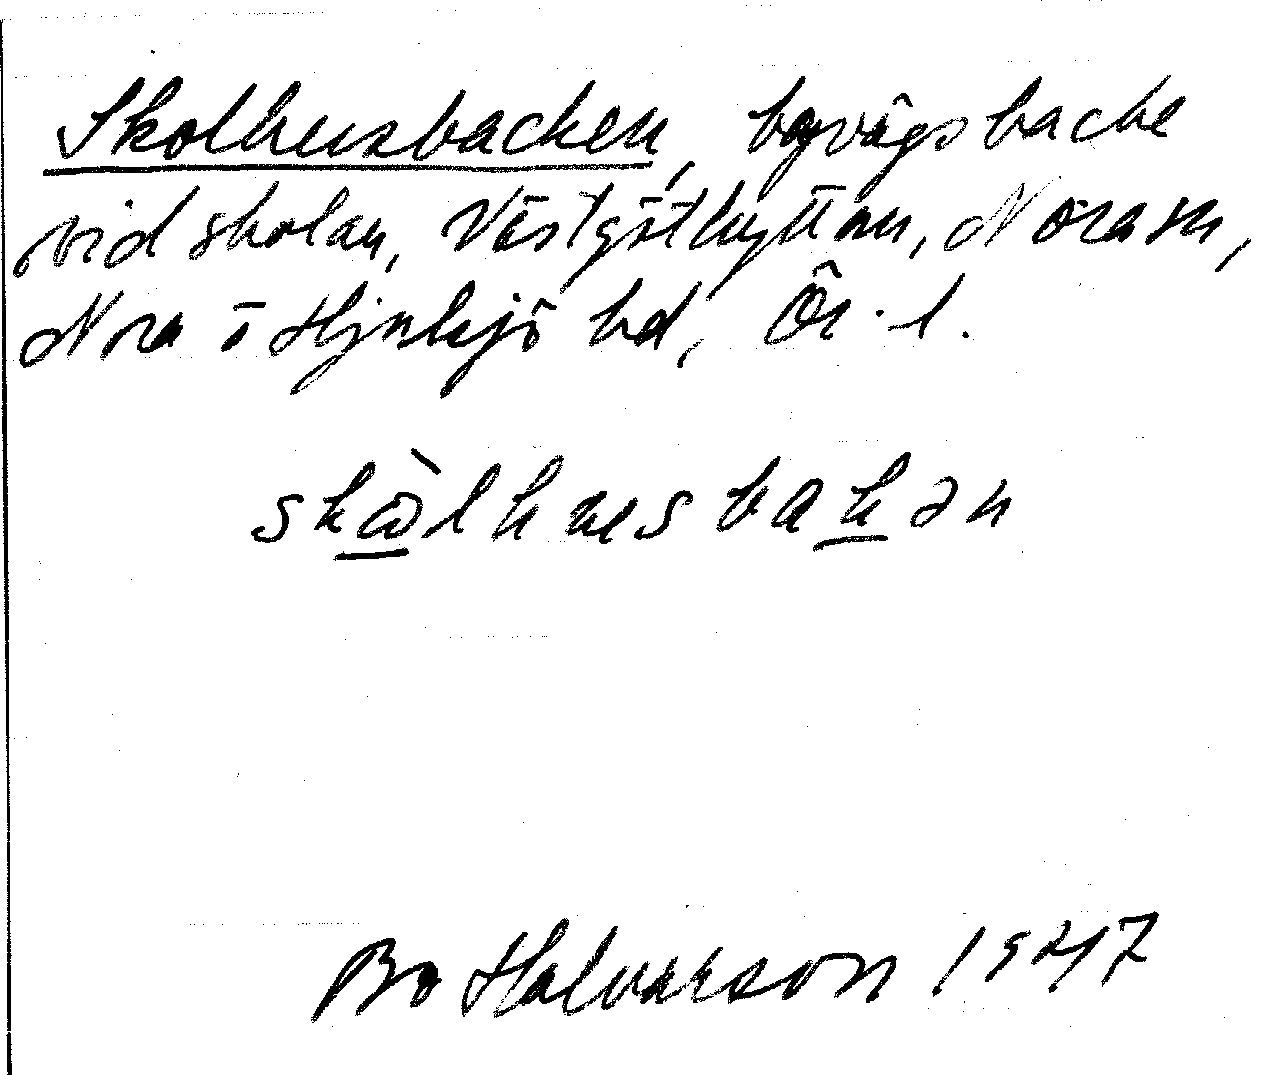 Skolhusbacken, byvägsbacke
vid skolan, Västgöthyttan, Nora sn,
Nora o Hjulsjö bd, Ör. l.
skὼ̲lhusbak̲ən
Bo Halvarson 1947